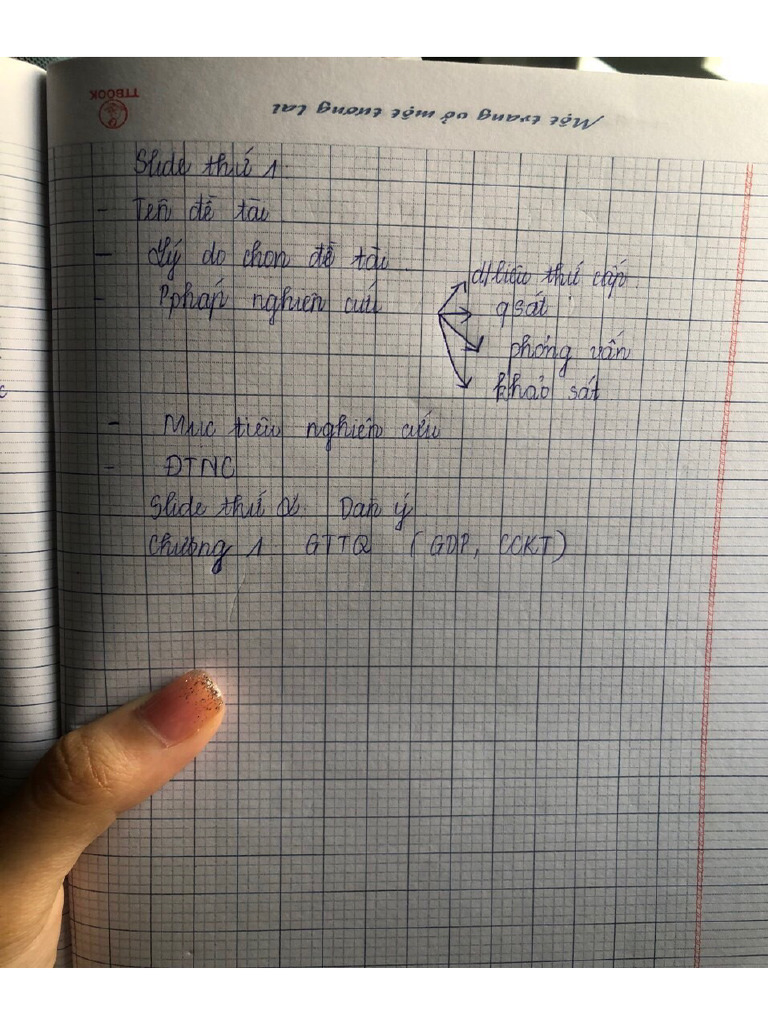 Một trang vở một tương lai
TTBOOK
Slide thứ 1.
- Tên đề tài
- Lý do chọn đề tài.
d/liệu thứ cấp
- P.pháp nghiên cứu
q sát
phỏng vấn
khảo sát
- Mục tiêu nghiên cứu
- ĐTNC
Slide thứ 2. Dàn ý
Chương 1 GTTQ (GDP, CCKT)